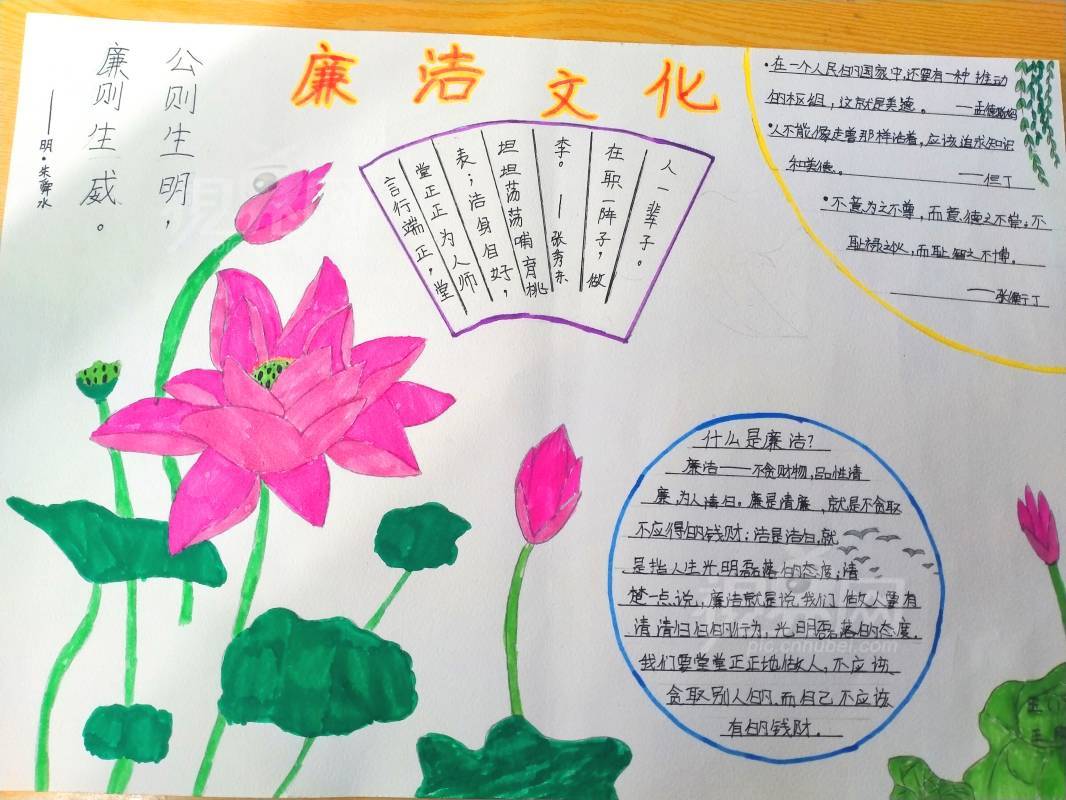 廉洁文化
公则生明，
廉则生威。
——明·朱舜水
人一辈子。
在职一阵子，做
李。——张秀东
坦坦荡荡哺育桃
表；洁身自好，
堂正正为人师
言行端正，堂
·在一个人民的国家中，还要有一种推动
的枢纽，这就是美德。——孟德斯鸠
·人不能像走兽那样活着，应该追求知识
和美德。——但丁
·不患位之不尊，而患德之不崇；不
耻禄之伙，而耻智之不博。
什么是廉洁？
廉洁——不贪财物，品性清
廉，为人清白。廉是清廉，就是不贪取
不应得的钱财；洁是洁白，就
是指人生光明磊落的态度；清
楚一点说，廉洁就是说我们做人要有
清清白白的行为，光明磊落的态度，
我们要堂堂正正地做人，不应该
贪取别人的，而自己不应该
有的钱财。
pic.cnhubei.com